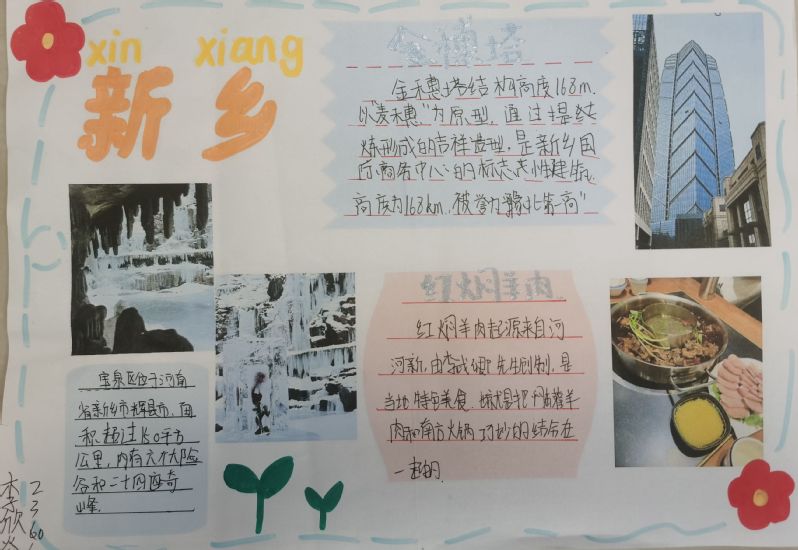 xin xiang
新乡
金穗塔
金穗塔结构高度168m,
以"麦穗"为原型,通过提炼
炼形成的吉祥造型,是新乡国
际商务中心的标志志性建筑
高度为168km,被誉为"豫北第一高"
宝泉区位于河南
省新乡市辉县市,面
积超过150平方
公里,内有六个大险
谷和二十四座奇
峰.
红焖羊肉
红焖羊肉起源来自河
河新,由李武
先生创制,是
当地特色美食
羊
肉和南方火锅巧妙的结合在
一起的.
李
欣
2
3
60